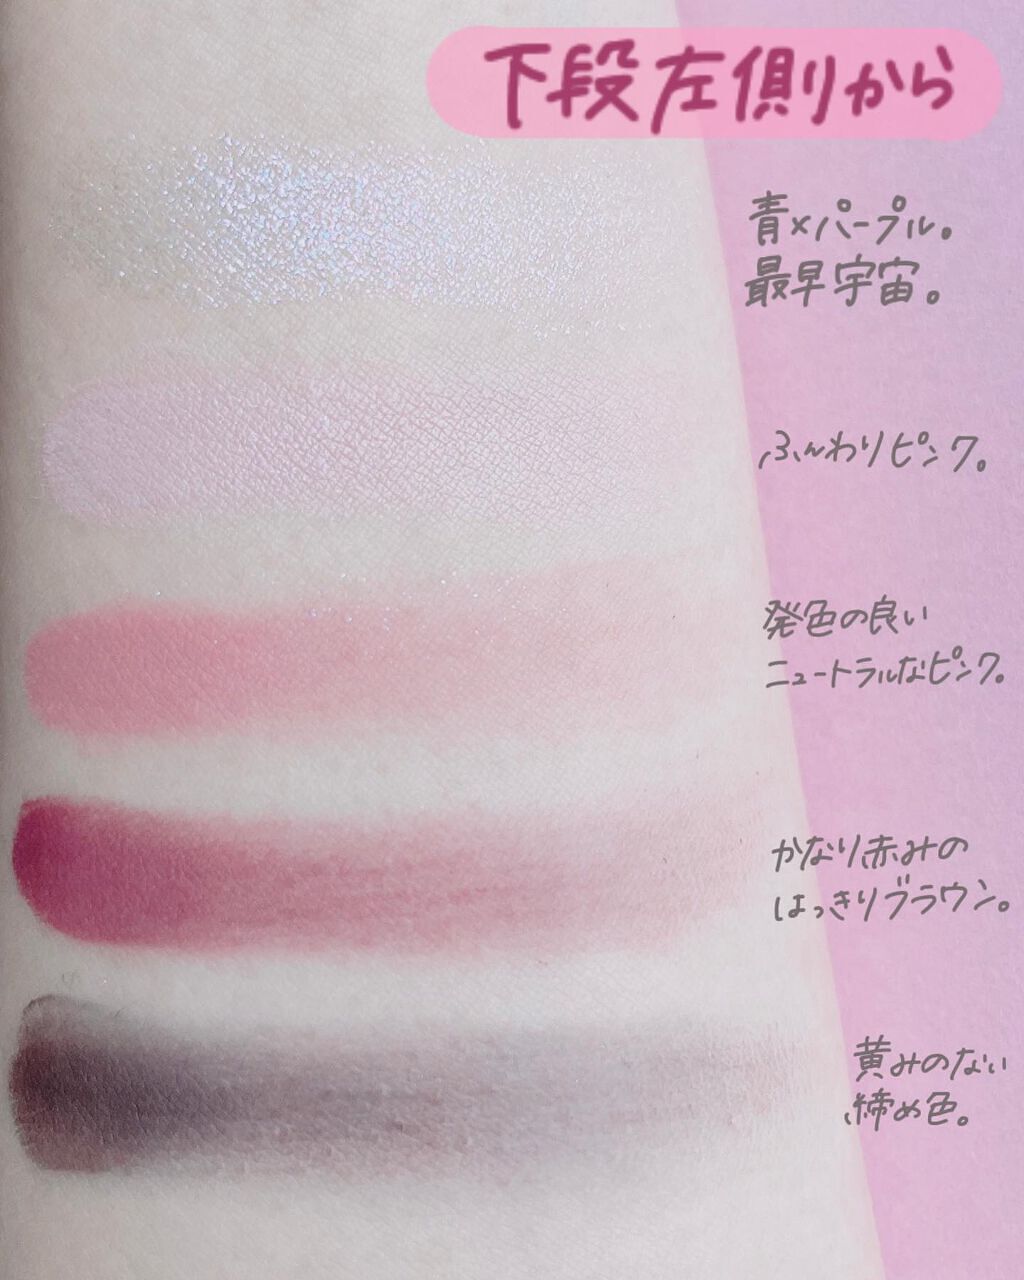 下段左側から
青×パープル。
最早宇宙。
ふんわりピンク。
発色の良い
ニュートラルなピンク。
かなり赤みの
はっきりブラウン。
黄みのない
締め色。